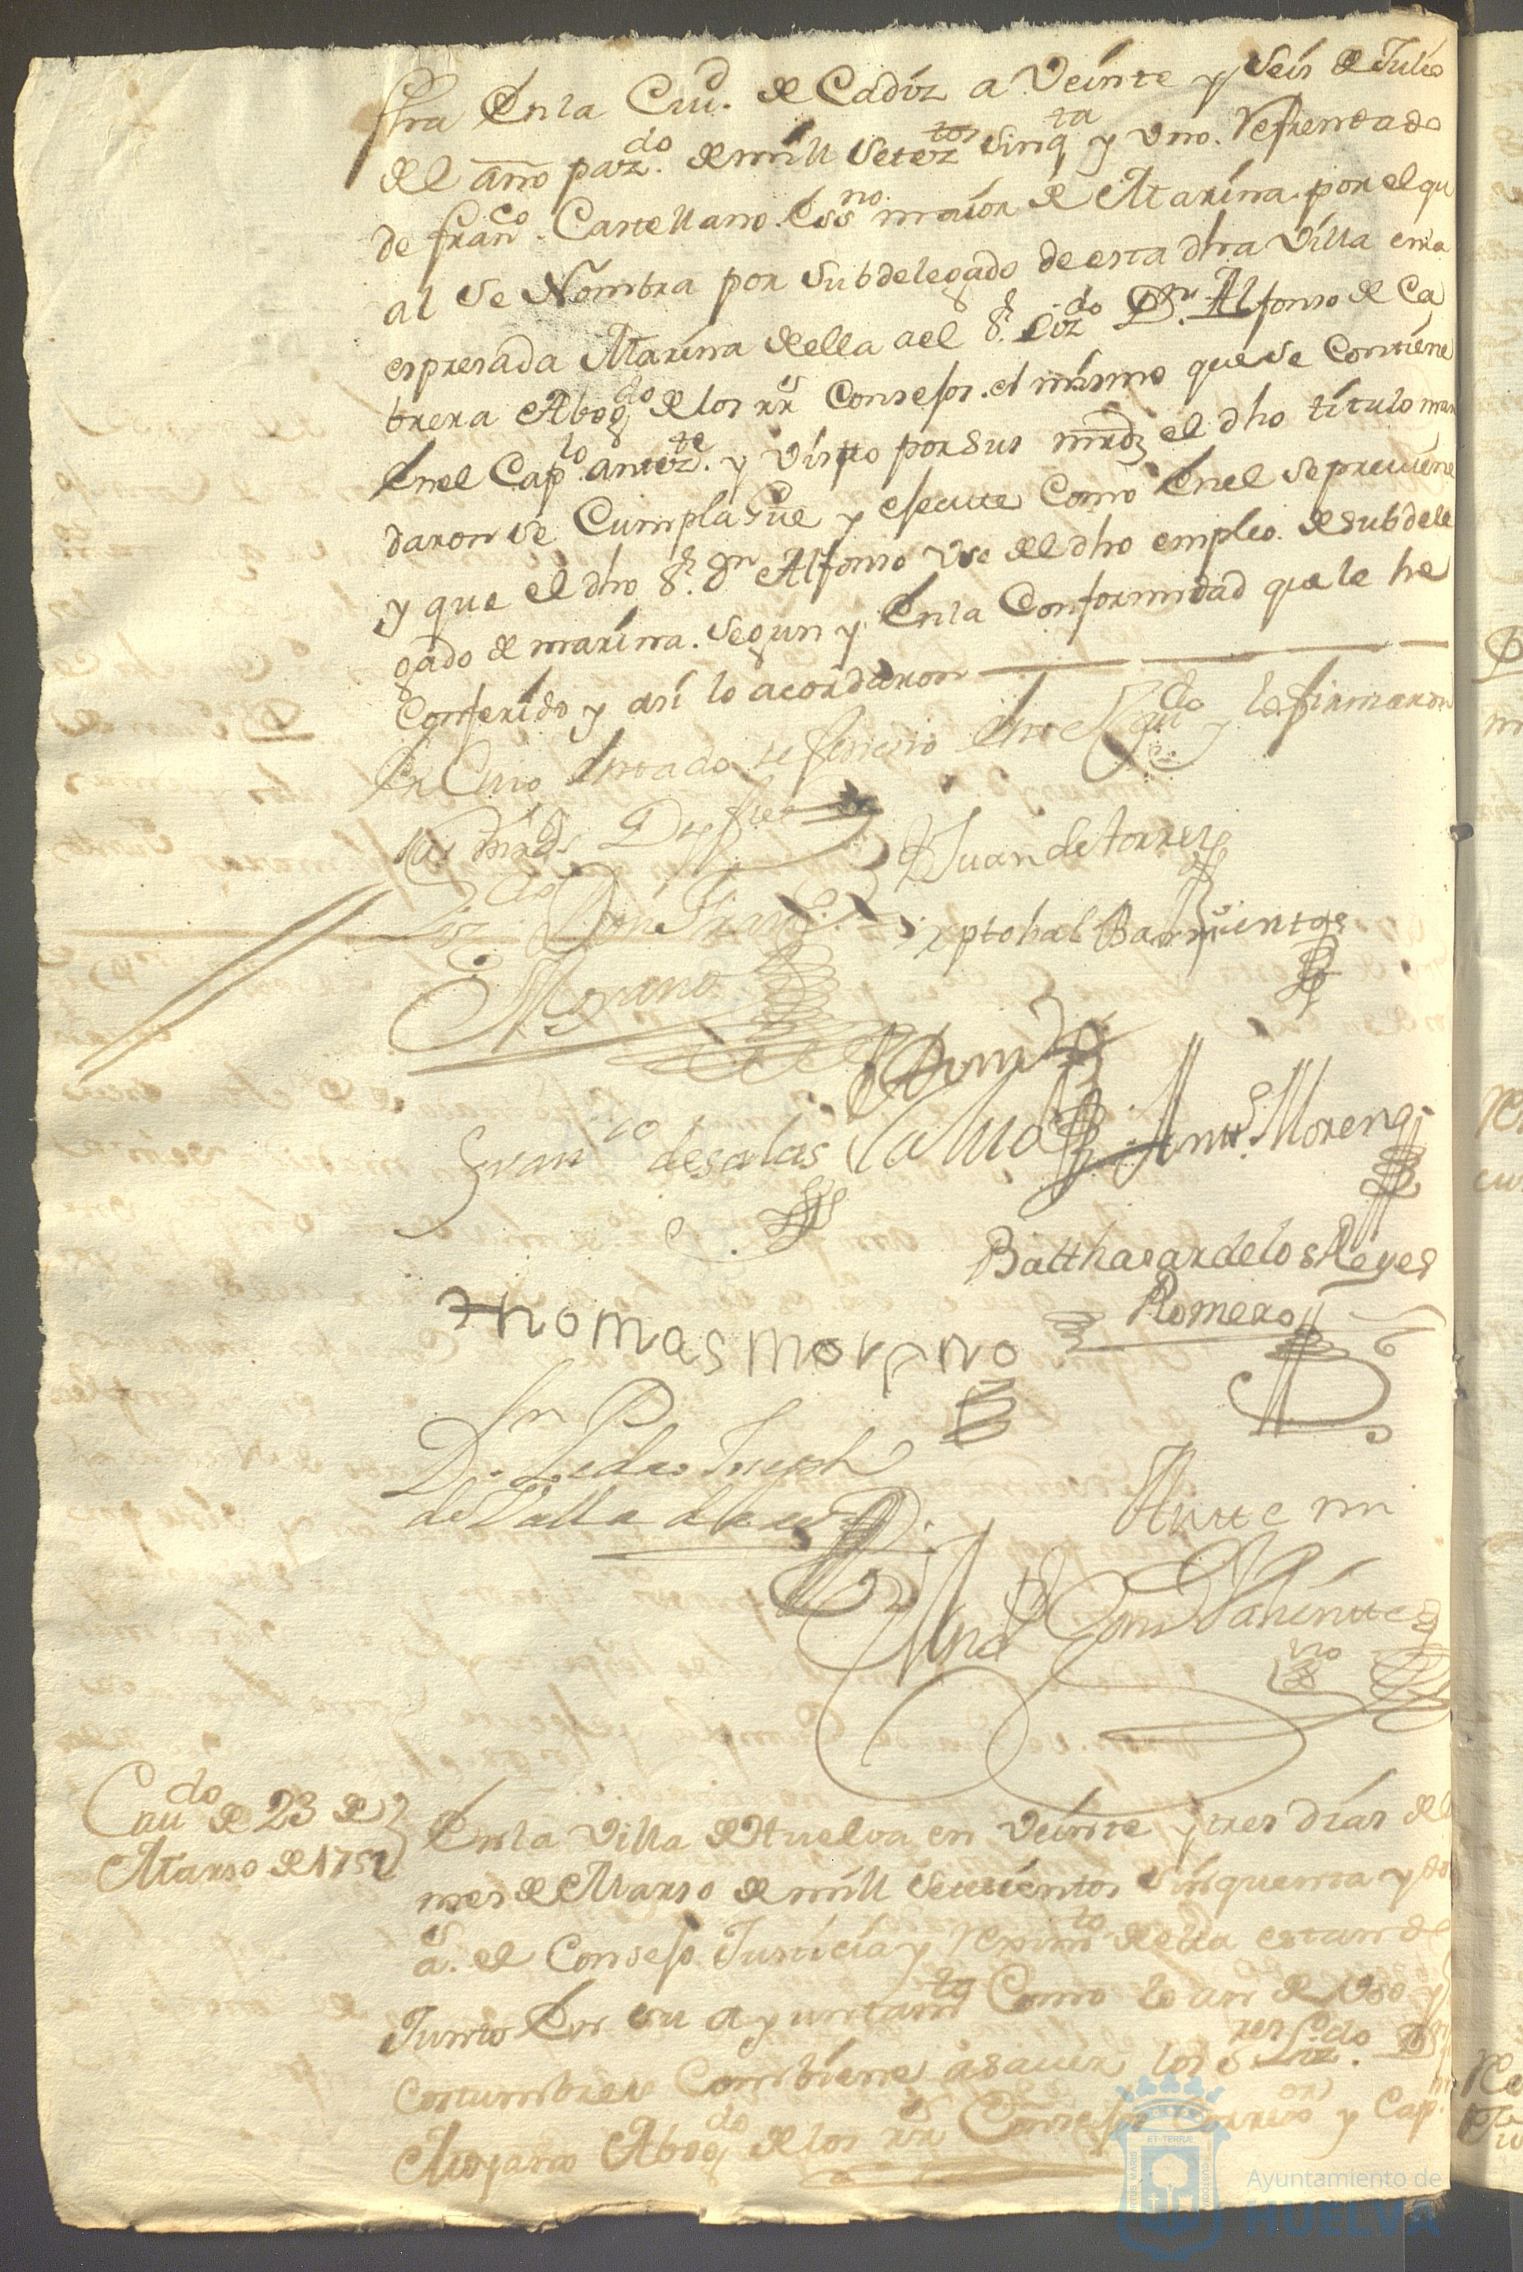 fha En la Ciud. de Cadiz a Veinte y Seis de Julio
del año paz.do de mill Setez.tos Sinq.ta y Uno. Refrentado
de fran.co Castellano. Ess.no maior de Marina. por el qu
al Se Nombra por Subdelegado de esta dha Villa en la
espresada Marina de ella a el S.r Liz.do D.n Alfonso de Ca
brera Abog.do de los r.s Consejos. el mismo que se Contiene
En el Cap.lo antez.te y Visto por Sus mrdz el dho titulo man
daron se Cumpla gue y esecute Como En el Se previene
y que el dho S.r D.n Alfonso Use del dho empleo de Subdele
gado de marina. Segun y En la Conformidad que le he
Conferido y asi lo acordaron
En Cuio estado se fenesio Este Cau.do y lo firmaron
sus mrds Doy fee
Juan de torres
Liz.do Don Fran.co
Xptobal Barrientos
Moyano
Fran.co de salas
Ant.o Moreno
Balthasar de los Reyes
Romero
thomas moreno
D.n Pedro Joseph
de Valladares
Antte mi
Valientte
ss.no
Cau.do de 23 de
Marso de 1752
En la Villa de Huelva en Veinte y tres dias del
mes de Marso de mill Setesientos Sinquenta y dos
a.s el Consejo Justicia y Reximi.to de ella estand
Junto En su ayuntam.to Como lo an de Uso y
costumbre Combiene a Saver los S.res Liz.do D.n
Moyano Abog.do de los r.s Consejos Correg.or y Cap.n
Ayuntamiento de
HUELVA